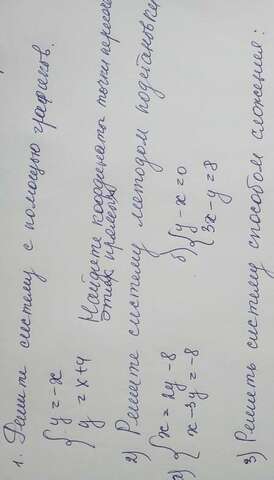 1. Решите систему с помощью графиков.
{ y = -x
y = x+4
Найдите координаты точки
этих прямых
2) Решите систему методом подстановки
а) { x = 2y - 8
x - 3y = -8
б) { y - x = 0
3x - y = 8
3) Решить систему способом сложения: